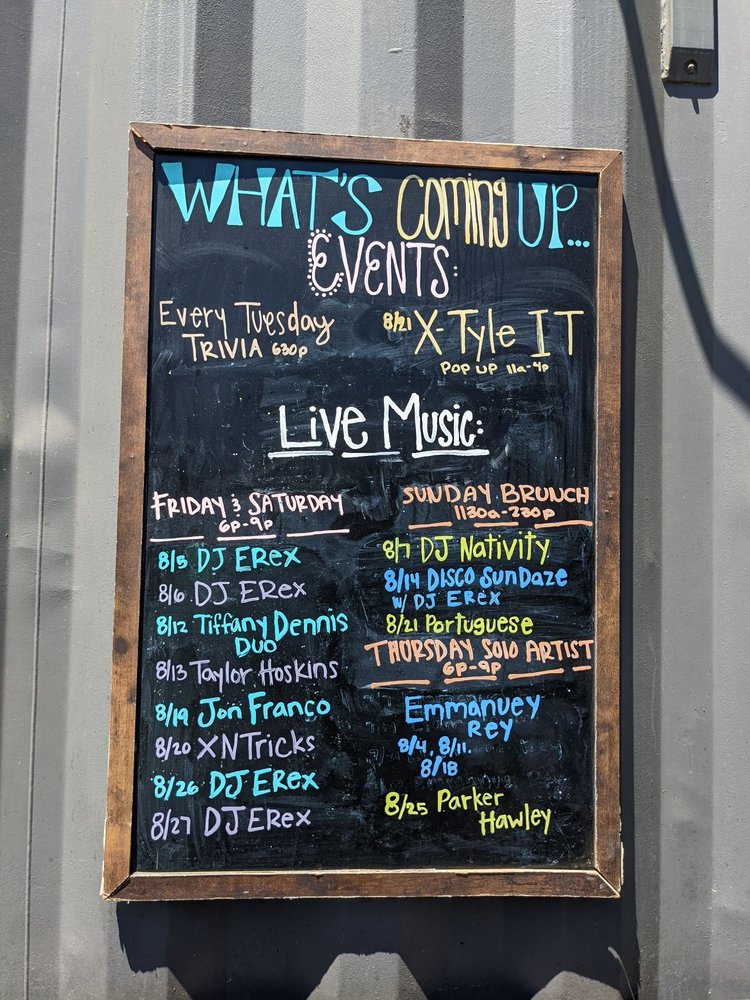 WHAT'S Coming UP...
EVENTS:
Every Tuesday
TRIVIA 630p
8/21 X-Tyle IT
POP UP 11a-4p
Live Music:
FRIDAY & SATURDAY
6P-9P
8/5 DJ ERex
8/6 DJ ERex
8/12 Tiffany Dennis
DUO
8/13 Taylor Hoskins
8/19 Jon Franco
8/20 XNTricks
8/26 DJ ERex
8/27 DJ ERex
SUNDAY BRUNCH
1130a-230p
8/7 DJ Nativity
8/14 DISCO SunDaze
w/ DJ ERex
8/21 Portuguese
THURSDAY SOLO ARTIST
6P-9P
Emmanuey
Rey
8/4, 8/11.
8/18
8/25 Parker
Hawley